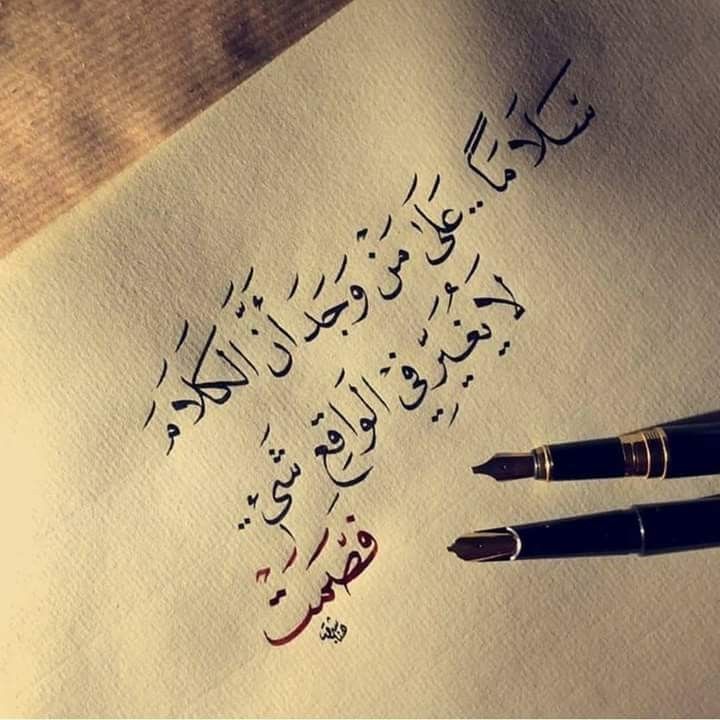 سَلَامَاً.. عَلَىٰ مَنْ وَجَدَ أَنَّ الْكَلَامَ
لَا يُغَيِّرُ فِيْ الْوَاقِعِ شَيْء..
فَصَمَتْ